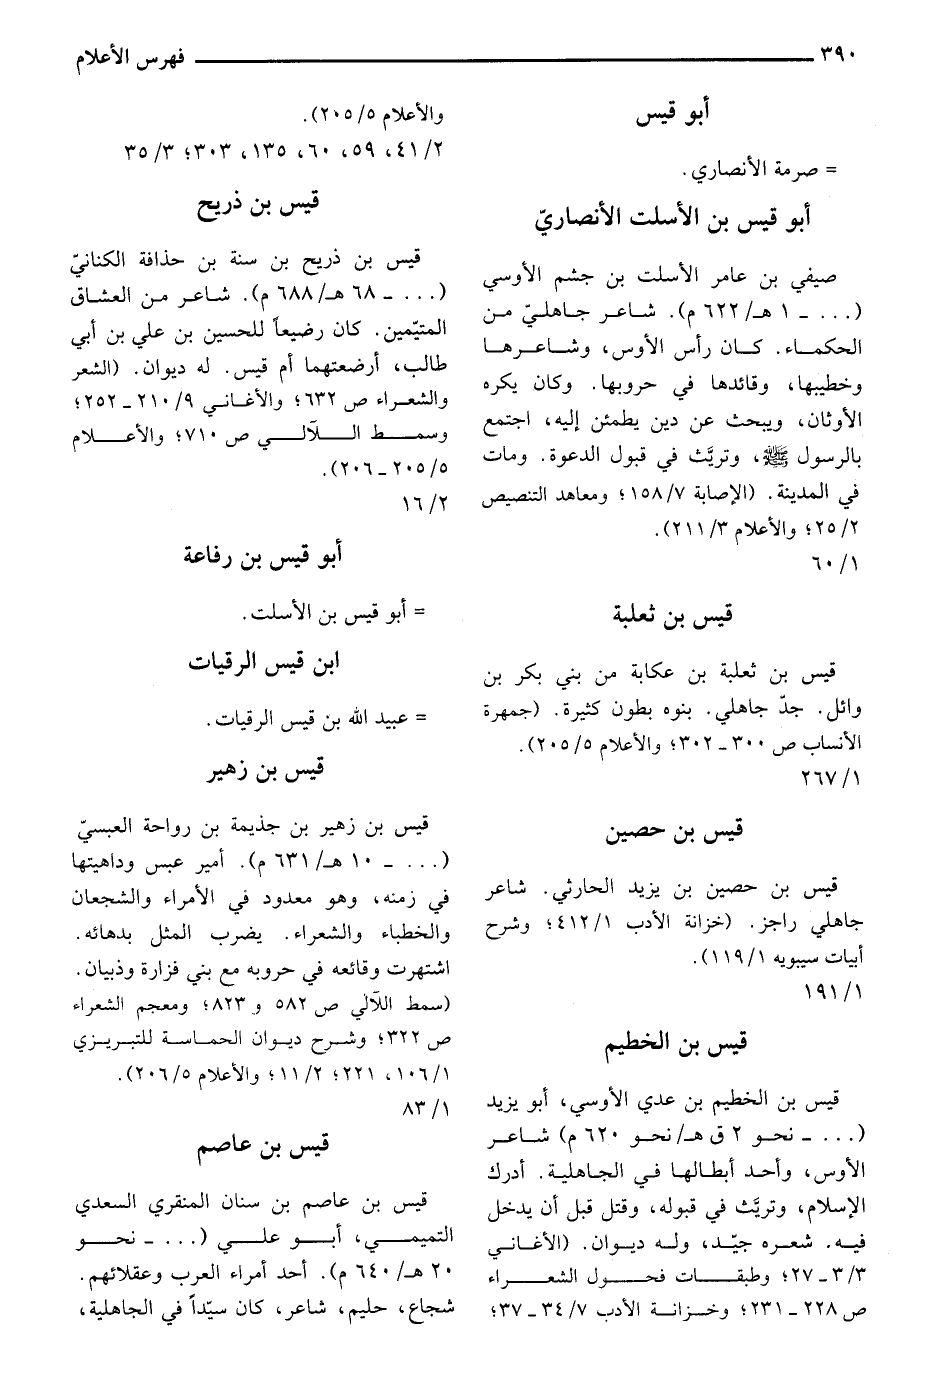 ٣٩٠ فهرس الأعلام
أبو قيس
= صرمة الأنصاري.
أبو قيس بن الأسلت الأنصاريّ
صيفي بن عامر الأسلت بن جشم الأوسي
(... ـ ١ هـ/ ٦٢٢ م). شاعر جاهليّ من
الحكماء. كان رأس الأوس، وشاعرها
وخطيبها، وقائدها في حروبها. وكان يكره
الأوثان، ويبحث عن دين يطمئن إليه، اجتمع
بالرسول ﷺ، وتريَّث في قبول الدعوة. ومات
في المدينة. (الإصابة ٧/ ١٥٨؛ ومعاهد التنصيص
٢/ ٢٥؛ والأعلام ٣/ ٢١١).
١/ ٦٠
قيس بن ثعلبة
قيس بن ثعلبة بن عكابة من بني بكر بن
وائل. جدّ جاهلي. بنوه بطون كثيرة. (جمهرة
الأنساب ص ٣٠٠ ـ ٣٠٢؛ والأعلام ٥/ ٢٠٥).
١/ ٢٦٧
قيس بن حصين
قيس بن حصين بن يزيد الحارثي. شاعر
جاهلي راجز. (خزانة الأدب ١/ ٤١٢؛ وشرح
أبيات سيبويه ١/ ١١٩).
١/ ١٩١
قيس بن الخطيم
قيس بن الخطيم بن عدي الأوسي، أبو يزيد
(... ـ نحو ٢ ق هـ/ نحو ٦٢٠ م) شاعر
الأوس، وأحد أبطالها في الجاهلية. أدرك
الإسلام، وتريَّث في قبوله، وقتل قبل أن يدخل
فيه. شعره جيّد، وله ديوان. (الأغاني
٣/ ٣ ـ ٢٧؛ وطبقات فحول الشعراء
ص ٢٢٨ ـ ٢٣١؛ وخزانة الأدب ٧/ ٣٤ ـ ٣٧؛
والأعلام ٥/ ٢٠٥).
٢/ ٤١، ٥٩، ٦٠، ١٣٥، ٣٠٣؛ ٣/ ٣٥
قيس بن ذريح
قيس بن ذريح بن سنة بن حذافة الكنانيّ
(... ـ ٦٨ هـ/ ٦٨٨ م). شاعر من العشاق
المتيّمين. كان رضيعاً للحسين بن علي بن أبي
طالب، أرضعتهما أم قيس. له ديوان. (الشعر
والشعراء ص ٦٣٢؛ والأغاني ٩/ ٢١٠ ـ ٢٥٢؛
وسمط اللآلي ص ٧١٠؛ والأعلام
٥/ ٢٠٥ ـ ٢٠٦).
٢/ ١٦
أبو قيس بن رفاعة
= أبو قيس بن الأسلت.
ابن قيس الرقيات
= عبيد الله بن قيس الرقيات.
قيس بن زهير
قيس بن زهير بن جذيمة بن رواحة العبسيّ
(... ـ ١٠ هـ/ ٦٣١ م). أمير عبس وداهيتها
في زمنه، وهو معدود في الأمراء والشجعان
والخطباء والشعراء. يضرب المثل بدهائه.
اشتهرت وقائعه في حروبه مع بني فزارة وذبيان.
(سمط اللآلي ص ٥٨٢ و ٨٢٣؛ ومعجم الشعراء
ص ٣٢٢؛ وشرح ديوان الحماسة للتبريزي
١/ ١٠٦، ٢٢١؛ ٢/ ١١؛ والأعلام ٥/ ٢٠٦).
١/ ٨٣
قيس بن عاصم
قيس بن عاصم بن سنان المنقري السعدي
التميمي، أبو علي (... ـ نحو
٢٠ هـ/ ٦٤٠ م). أحد أمراء العرب وعقلائهم.
شجاع، حليم، شاعر، كان سيّداً في الجاهلية،